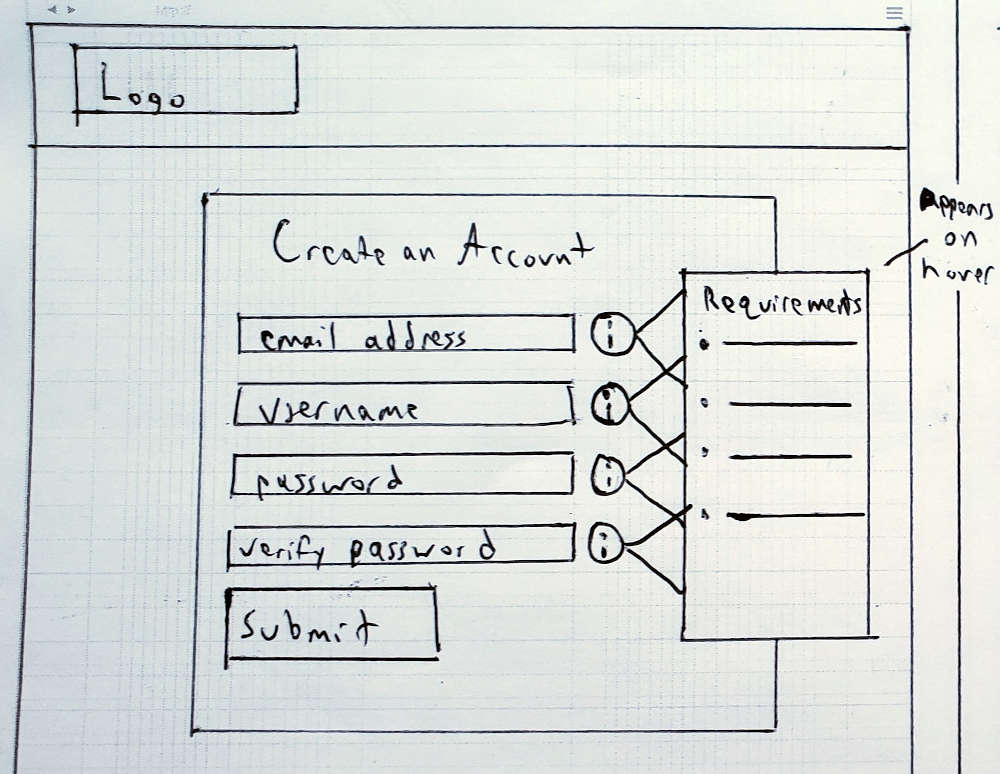 Logo
Create an Account
email address
username
password
verify password
Submit
Requirements
Appears
on
hover